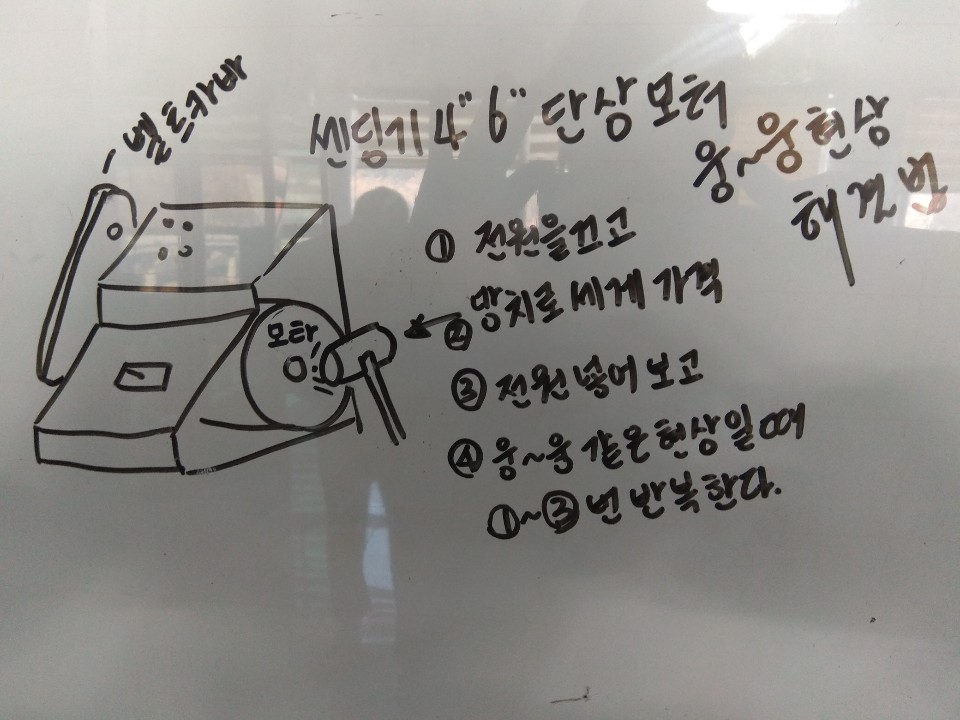 벨트카바
센딩기 4" 6" 단상모터
웅~웅현상
해결법
① 전원을끄고
② 망치로 세게 가격
③ 전원 넣어 보고
④ 웅~웅 같은현상일때
①~③번 반복한다.
모타